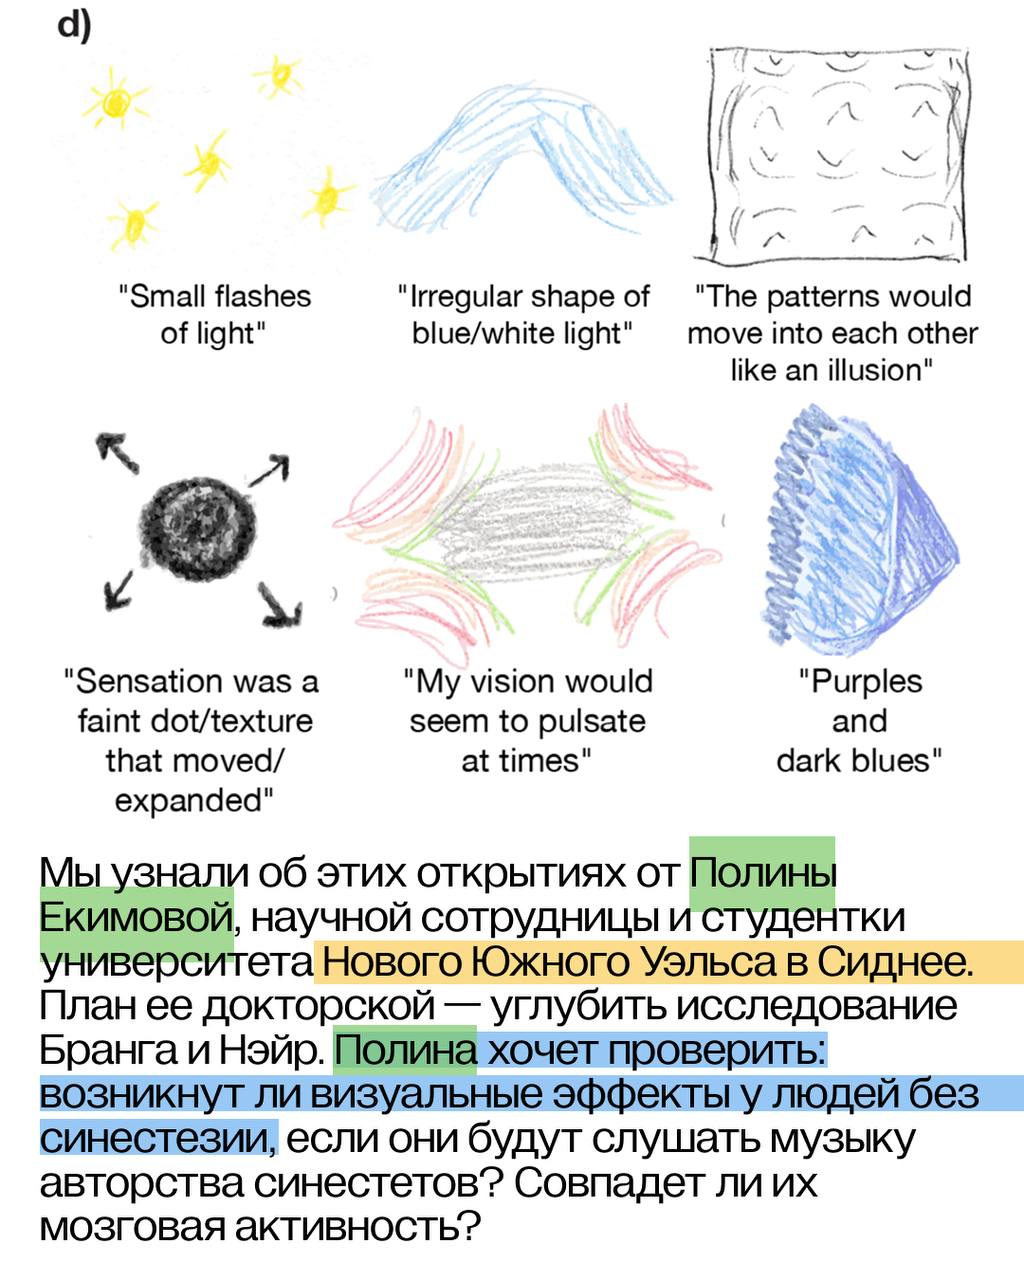 d)
"Small flashes
of light"
"Irregular shape of
blue/white light"
"The patterns would
move into each other
like an illusion"
"Sensation was a
faint dot/texture
that moved/
expanded"
"My vision would
seem to pulsate
at times"
"Purples
and
dark blues"
Мы узнали об этих открытиях от Полины
Екимовой, научной сотрудницы и студентки
университета Нового Южного Уэльса в Сиднее.
План ее докторской — углубить исследование
Бранга и Нэйр. Полина хочет проверить:
возникнут ли визуальные эффекты у людей без
синестезии, если они будут слушать музыку
авторства синестетов? Совпадет ли их
мозговая активность?